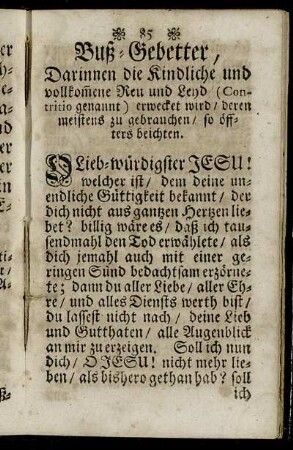 ❧ 85 ❧
Buß-Gebetter,
Darinnen die Kindliche und
vollkom̄ene Reu und Leyd (Con-
tritio genannt) erwecket wird / deren
meistens zu gebrauchen / so öff-
ters beichten.
O Lieb-würdigster JESU!
welcher ist / dem deine un-
endliche Güttigkeit bekannt / der
dich nicht aus gantzen Hertzen lie-
bet? billig wäre es / daß ich tau-
sendmahl den Tod erwählete / als
dich jemahl auch mit einer ge-
ringen Sünd bedachtsam erzörne-
te; dann du aller Liebe / aller Eh-
re / und alles Diensts werth bist /
du lassest nicht nach / deine Lieb
und Gutthaten / alle Augenblick
an mir zu erzeigen. Soll ich nun
dich / O JESU! nicht mehr lie-
ben / als bishero gethan hab? soll
ich